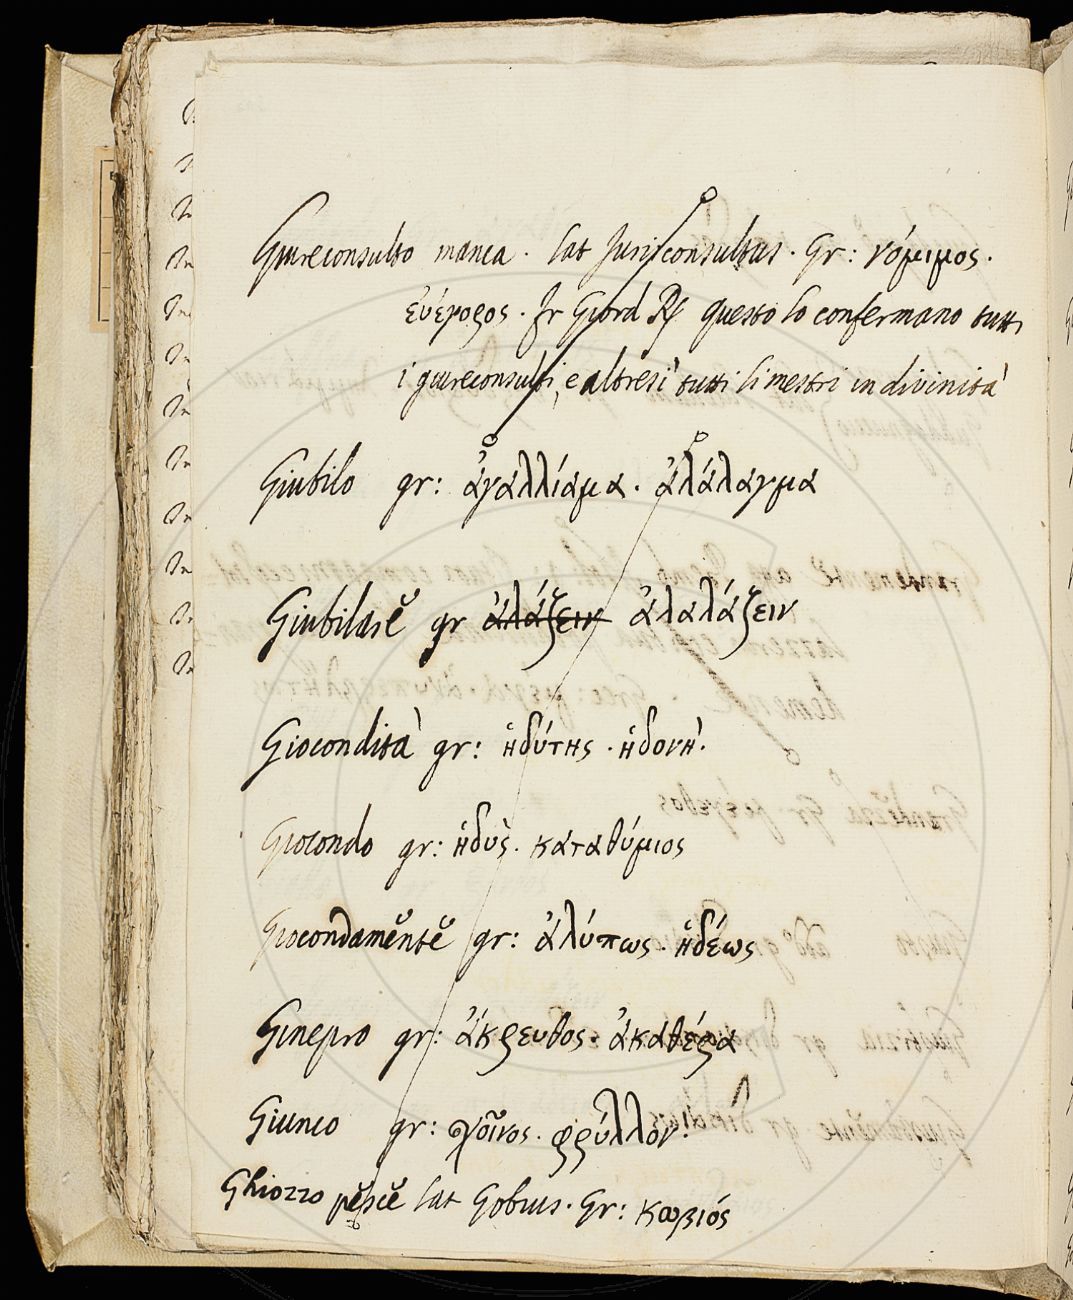 Giureconsulto manca. lat Jurisconsultus. Gr: νόμιμος.
Fr Giord Pr questo lo confermano tutti
i giureconsulti, e altresi tutti li mestri in divinità
Giubilo gr: ἀγαλλίαμα. ἀλάλαγμα
Giubilare gr ἀλάζειν ἀλαλάζειν
Giocondità gr: ἡδύτης. ἡδονή.
Giocondo gr: ἡδυς. καταθύμιος
Giocondamente gr: ἀλύπως. ἡδέως
Ginepro gr: ἄκρευθος. ἀκαθέρα
Giunco gr: φρύλλον.
Ghiozzo pesce lat Gobius. Gr: κωβιός